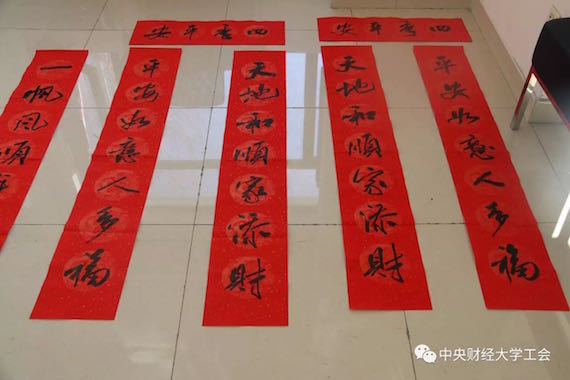 四季平安
四季平安
平安如意人多福
天地和順家添財
天地和順家添財
平安如意人多福
一帆風順年
中央财经大学工会